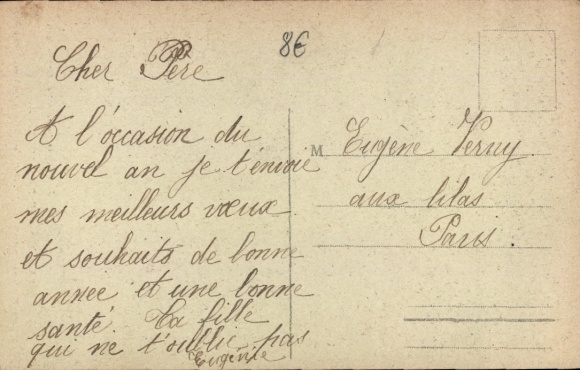 8€
Cher Père
A l'occasion du
nouvel an je t'envoie
mes meilleurs vœux
et souhaits de bonne
annee et une bonne
santé. Ta fille
qui ne t'oublie pas
Eugénie
M Eugène Verny
aux lilas
Paris.